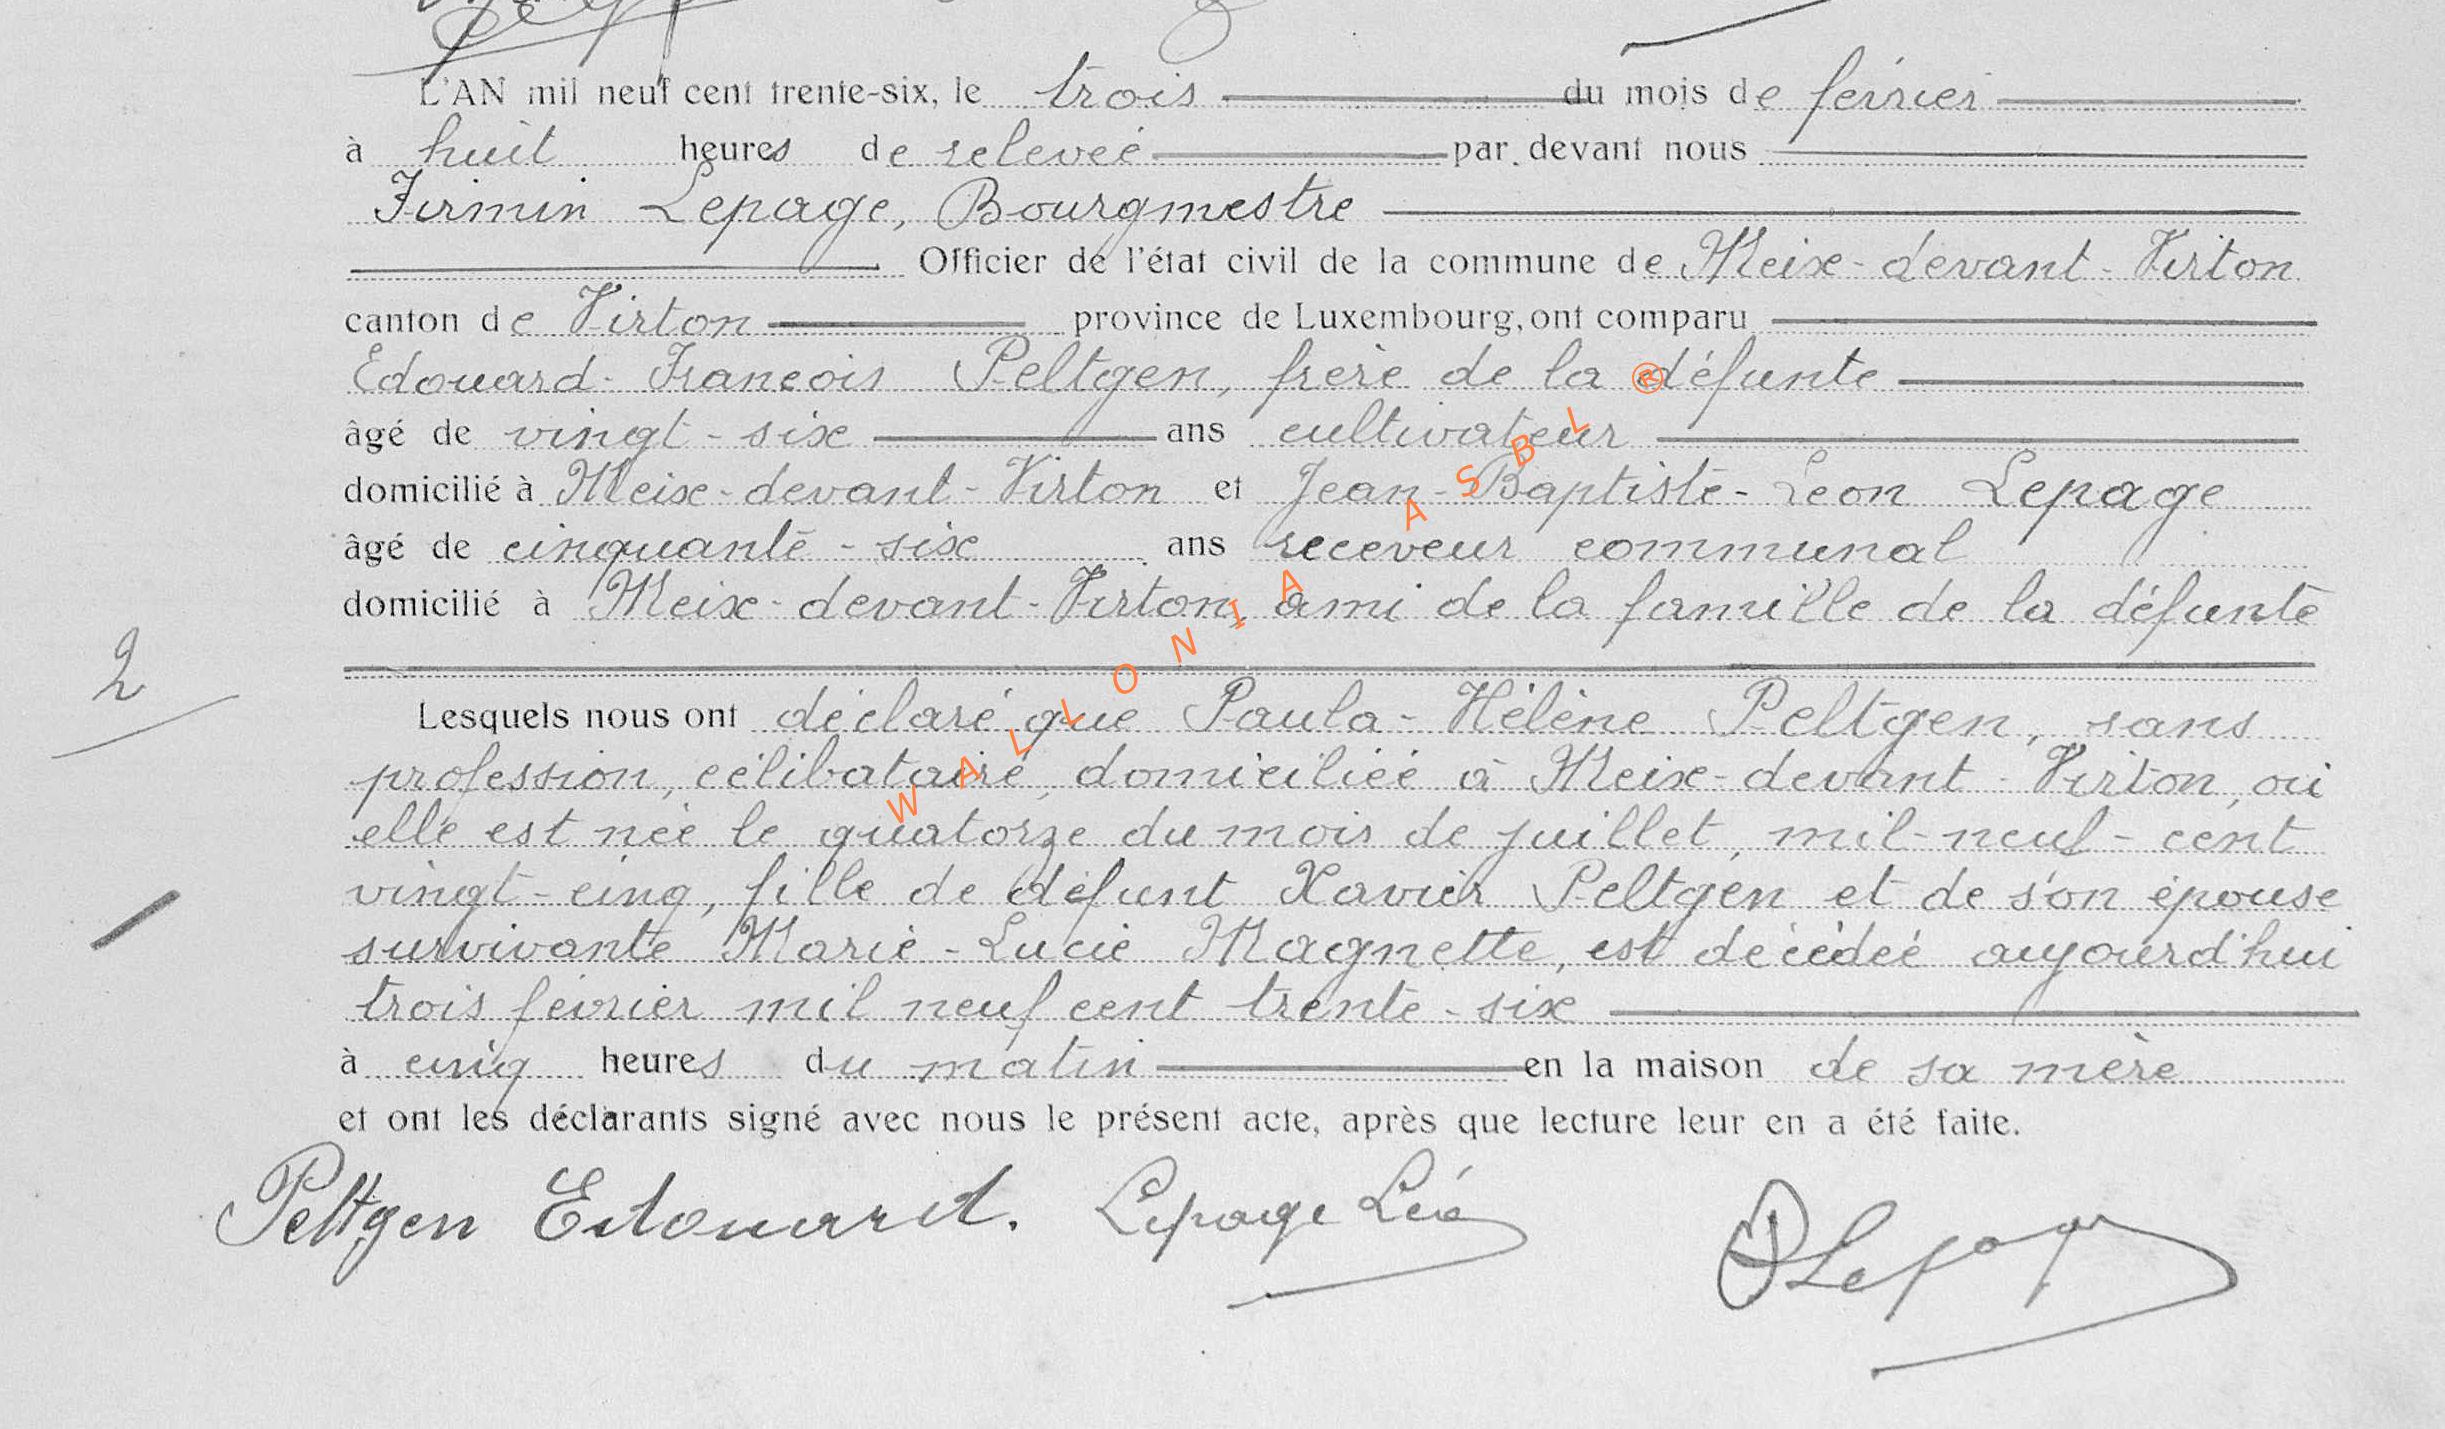 L'AN mil neuf cent trente-six, le trois du mois de février
à huit heures de relevée par devant nous
Firmin Lepage, Bourgmestre
Officier de l'état civil de la commune de Meix-devant-Virton
canton de Virton province de Luxembourg, ont comparu
Edouard-Francois Peltgen, frère de la défunte
âgé de vingt-six ans cultivateur
domicilié à Meix-devant-Virton et Jean-Baptiste-Leon Lepage
âgé de cinquante-six ans receveur communal
domicilié à Meix-devant-Virton, ami de la famille de la défunte
2
Lesquels nous ont déclaré que Paula-Hélène Peltgen, sans
profession, célibataire, domiciliée à Meix-devant-Virton, où
elle est née le quatorze du mois de juillet, mil-neuf-cent
vingt-cinq, fille de défunt Xavier Peltgen et de son épouse
survivante Marie-Lucie Magnette, est décédée aujourd'hui
trois février mil neuf cent trente-six
à cinq heures du matin en la maison de sa mère
et ont les déclarants signé avec nous le présent acte, après que lecture leur en a été faite.
Peltgen Edouard. Lepage Léon Lepage
WALLONIA ASBL ®